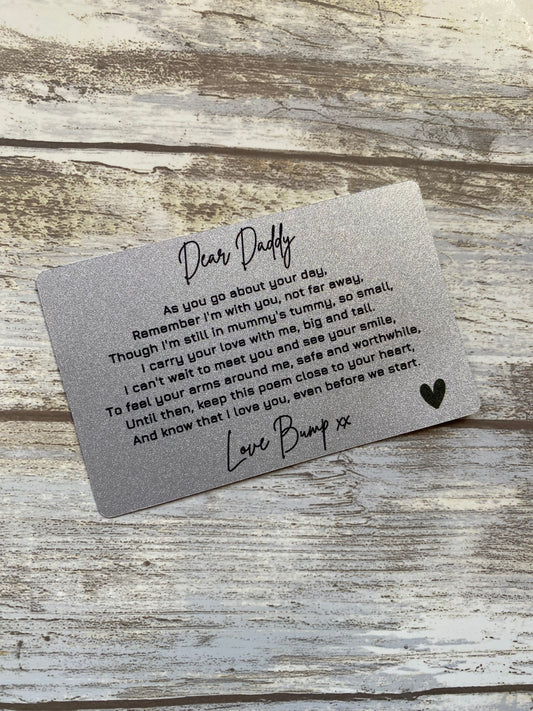 Dear Daddy
As you go about your day,
Remember I'm with you, not far away,
Though I'm still in mummy's tummy, so small,
I carry your love with me, big and tall.
I can't wait to meet you and see your smile,
To feel your arms around me, safe and worthwhile,
Until then, keep this poem close to your heart,
And know that I love you, even before we start.
Love Bump xx